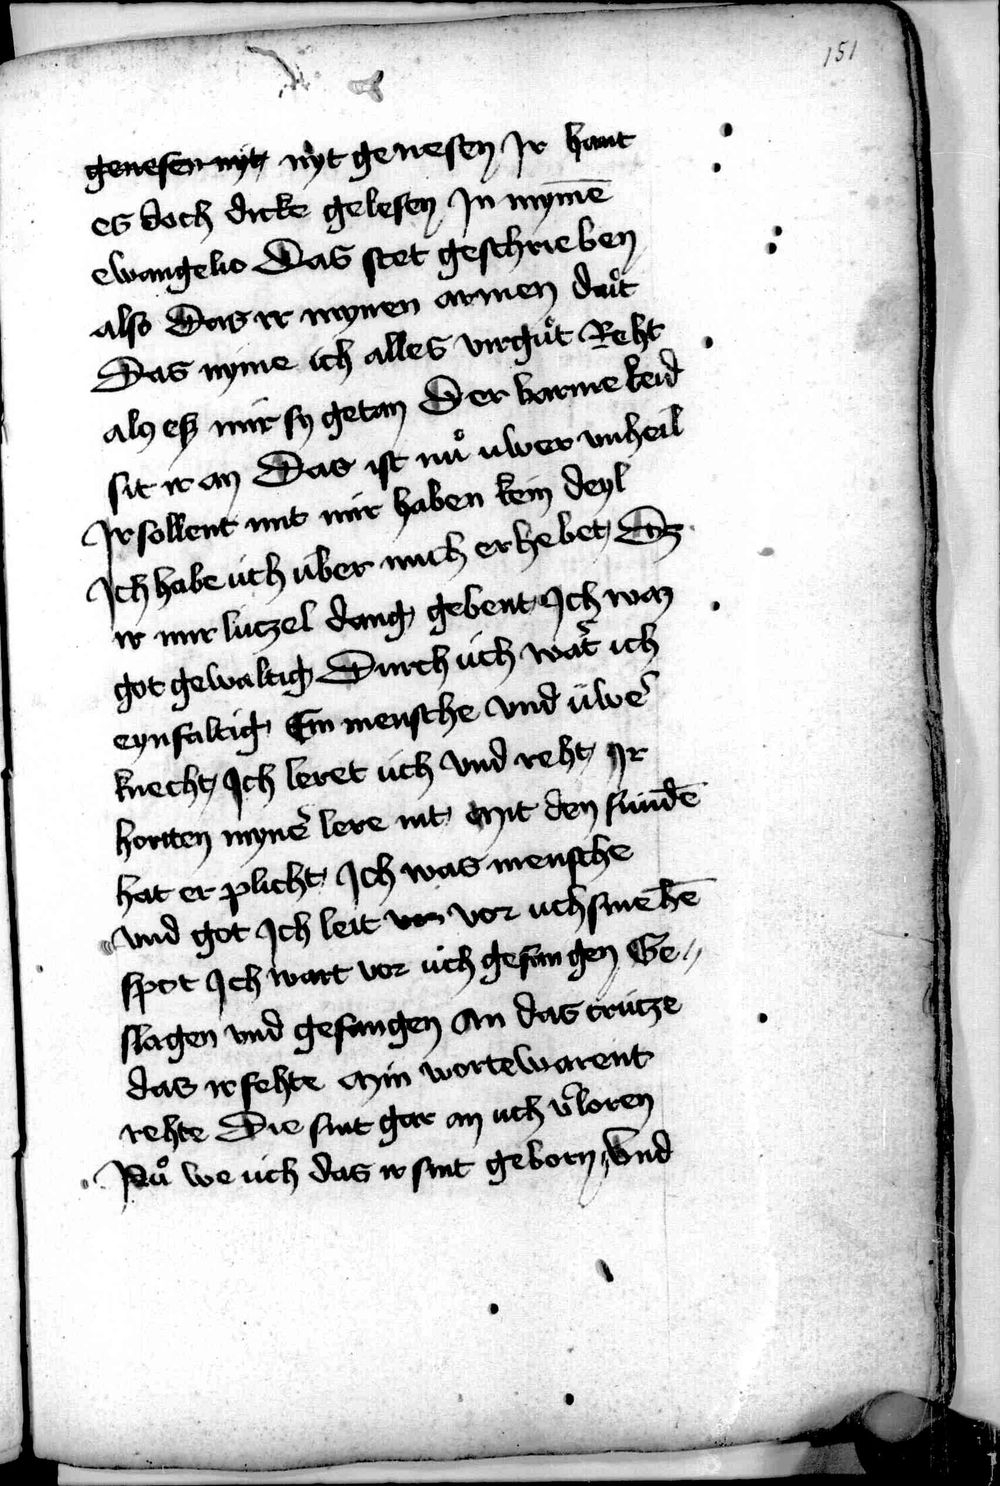 151
genesen nyt nyt genesen Jr hant
es doch dicke gelesen Jn mymē
ewangelio Das stet geschrieben
also Das ir mynen armen duͦt
Das nyme ich alles vir guͦt Reht
als eß mir sy getan Der barmekeid
sit ir an Das ist nuͦ uwer vnheil
Jr sollent mit mir haben kein deyl
Jch habe uch uber mich erhebet Dz
ir mir lutzel dang gebent Jch waz
got gewaltig Durch uch wart ich
eynfaltig Ein mensche vnd uweʼ
knecht Jch leret uch vnd reht Jr
horten myneʼ lere nit Mit den sundē
hat er plicht Jch was mensche
vnd got Jch leit von vor uch smehē
spot Jch wart vor uch gefangen Ge⸗
slagen vnd gefangen An das crutze
das ir sehte Min worte warent
rehte Die sint gar an uch vʼloren
Nuͦ we uch das ir sint geborn Vnd